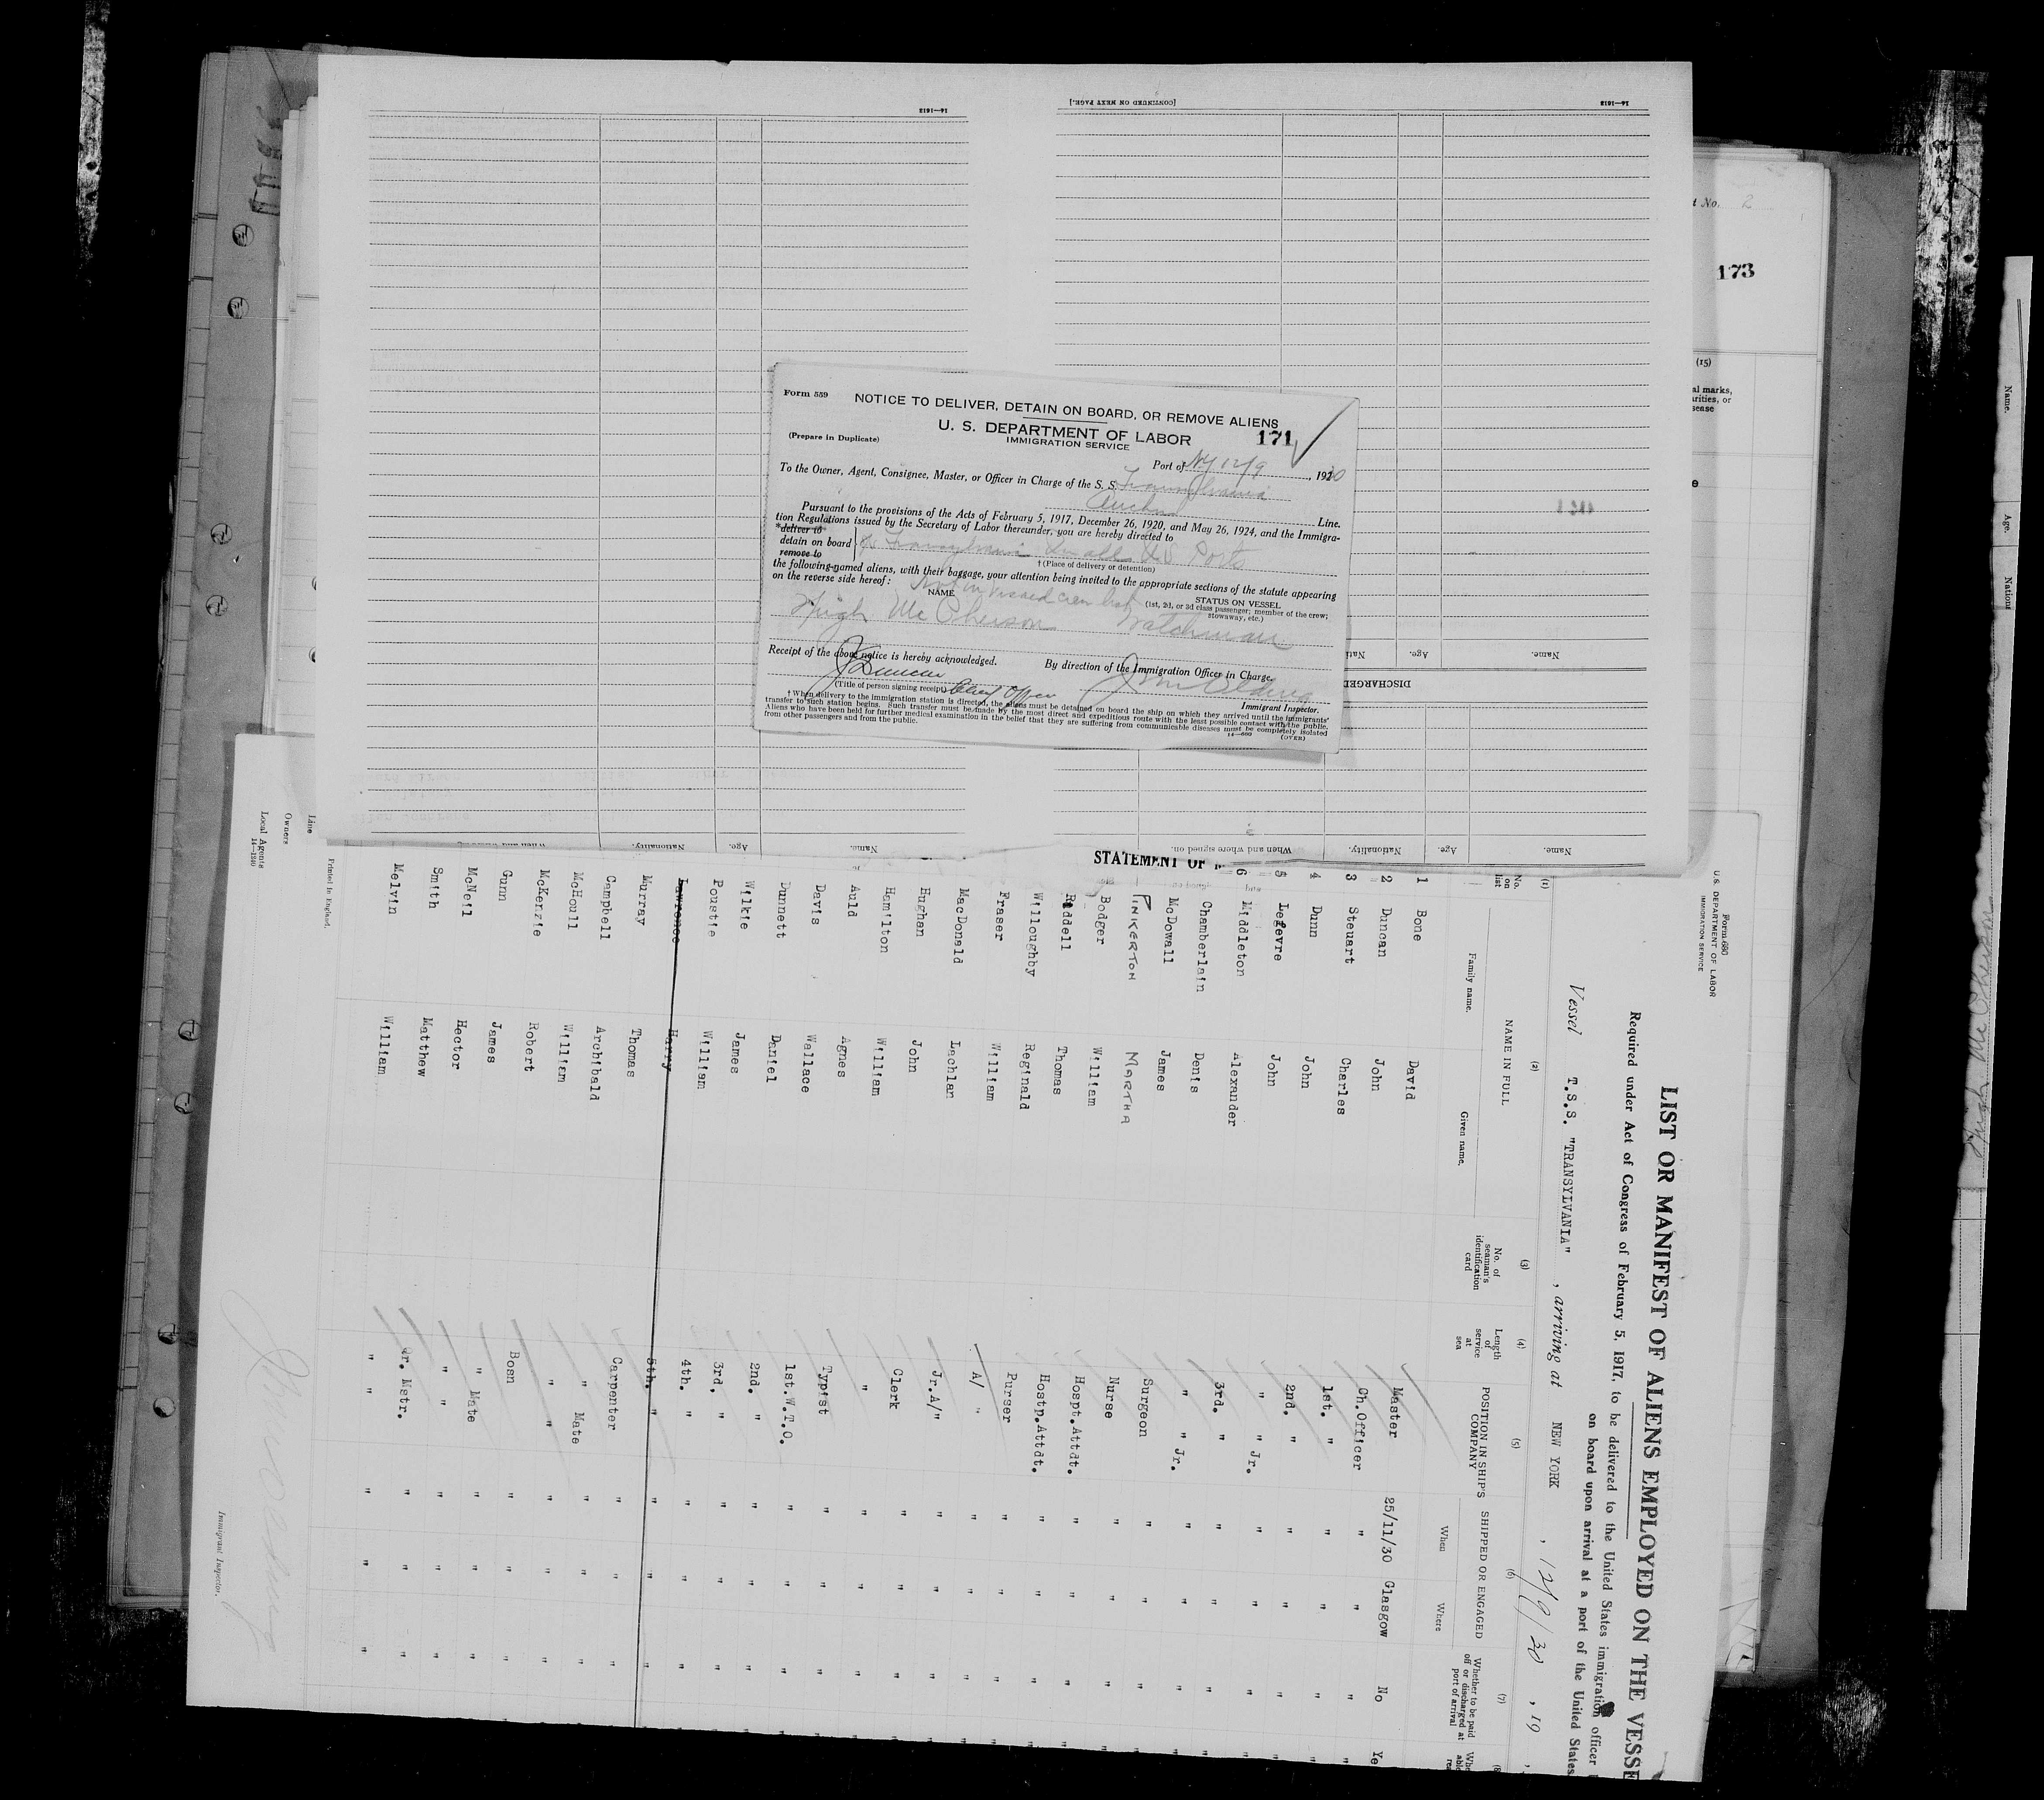 14—1613
[CONTINUED ON NEXT PAGE.]
14—1613
t No. 2
173
(15)
al marks,
arities, or
sease
Form 559
NOTICE TO DELIVER, DETAIN ON BOARD, OR REMOVE ALIENS
U. S. DEPARTMENT OF LABOR
171
(Prepare in Duplicate)
IMMIGRATION SERVICE
Port of NY 12/9, 1930
To the Owner, Agent, Consignee, Master, or Officer in Charge of the S. S. Transylvania
Anchor Line.
Pursuant to the provisions of the Acts of February 5, 1917, December 26, 1920, and May 26, 1924, and the Immigra-
tion Regulations issued by the Secretary of Labor thereunder, you are hereby directed to
*deliver to
detain on board
remove to
Transylvania in all U S Ports
† (Place of delivery or detention)
the following-named aliens, with their baggage, your attention being invited to the appropriate sections of the statute appearing
on the reverse side hereof: Not on visaed crew list
NAME
STATUS ON VESSEL
(1st, 2d, or 3d class passenger; member of the crew;
stowaway, etc.)
Hugh McPherson Watchman
Receipt of the above notice is hereby acknowledged.
By direction of the Immigration Officer in Charge.
J Duncan
(Title of person signing receipt) Chief Officer
Immigrant Inspector.
† When delivery to the immigration station is directed, the aliens must be detained on board the ship on which they arrived until the immigrants'
transfer to such station begins. Such transfer must be made by the most direct and expeditious route with the least possible contact with the public.
Aliens who have been held for further medical examination in the belief that they are suffering from communicable diseases must be completely isolated
from other passengers and from the public.
14—600
(OVER)
Nati
Age.
Name.
DISCHARGED
When and where signed on.
Nationality.
Age.
Name.
When and where signed on.
Nationality.
Age.
Name.
STATEMENT OF
Form 680
U.S. DEPARTMENT OF LABOR
IMMIGRATION SERVICE
LIST OR MANIFEST OF ALIENS EMPLOYED ON THE VESSE
Required under Act of Congress of February 5, 1917, to be delivered to the United States immigration officer
on board upon arrival at a port of the United States.
Vessel T.S.S. "TRANSYLVANIA", arriving at NEW YORK, 12/9/30, 19
(1) (2) (3) (4) (5) (6) (7) (8
No. on list
NAME IN FULL
Family name. Given name.
No. of seaman's identification card
Length of service at sea
POSITION IN SHIP'S COMPANY
SHIPPED OR ENGAGED
When Where
Whether to be paid off or discharged at port of arrival
1 Bone David Master 25/11/30 Glasgow No Ye
2 Duncan John Ch.Officer " " " "
3 Steuart Charles 1st. " " " " "
4 Dunn John 2nd. " " " " "
5 Lefevre John " " Jr. " " " "
6 Middleton Alexander 3rd. " " " " "
Chamberlain Denis " " Jr. " " " "
McDowall James Surgeon " " " "
PINKERTON MARTHA Nurse " " " "
Bodger William Hospt.Attdt. " " " "
Riddell Thomas Hostp.Attdt. " " " "
Willoughby Reginald Purser " " " "
Fraser William A/ " " " " "
MacDonald Lachlan Jr.A/" " " " "
Hughan John Clerk " " " "
Hamilton William " " " " "
Auld Agnes Typist " " " "
Davis Wallace 1st.W.T.O. " " " "
Dunnett Daniel 2nd. " " " " "
Wilkie James 3rd. " " " " "
Poustie William 4th. " " " " "
Lawrence Harry 5th. " " " "
Murray Thomas Carpenter " " " "
Campbell Archibald " Mate " " " "
McHoull William " " " " " "
McKenzie Robert Bosn " " " "
Gunn James " Mate " " " "
McNeil Hector " " " " "
Smith Matthew Qr. Mstr. " " "
Melvin William " " " " "
Printed in England.
Line
Owners
Local Agents
14—1240
Immigrant Inspector.
Name.
Age.
Nationa
Hugh McPherson